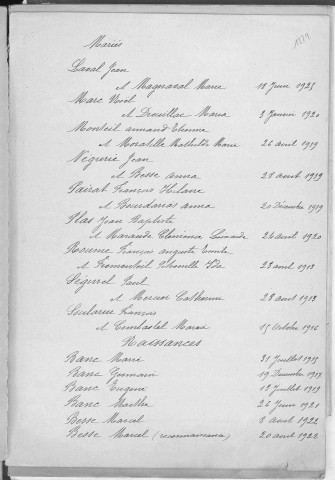 Mariés
Laval Jean
et Magnaval Marie 18 Juin 1923
Marc Noël
et Drouillac Maria 3 Janvier 1920
Monteil armand Etienne
et Mathilde Marie 26 avril 1919
Negrerie Jean
et Besse anna 28 aout 1919
Pairat François Hilaire
et Bourdarias anna 20 Décembre 1919
Plas Jean Baptiste
et Clémence 24 avril 1920
Roume François auguste Emile
et Fromenteil Ida 23 avril 1913
Ségurel Paul
et Mercier Catherine 28 avril 1913
François
et Combastel Maria 15 Octobre 1916
Naissances
Banc Marie 31 Juillet 1915
Banc Germain 19 Décembre 1917
Banc Eugène 12 Juillet 1919
Banc Martha 26 Juin 1921
Besse Marcel 8 avril 1922
Besse Marcel (reconnaissance) 20 avril 1922